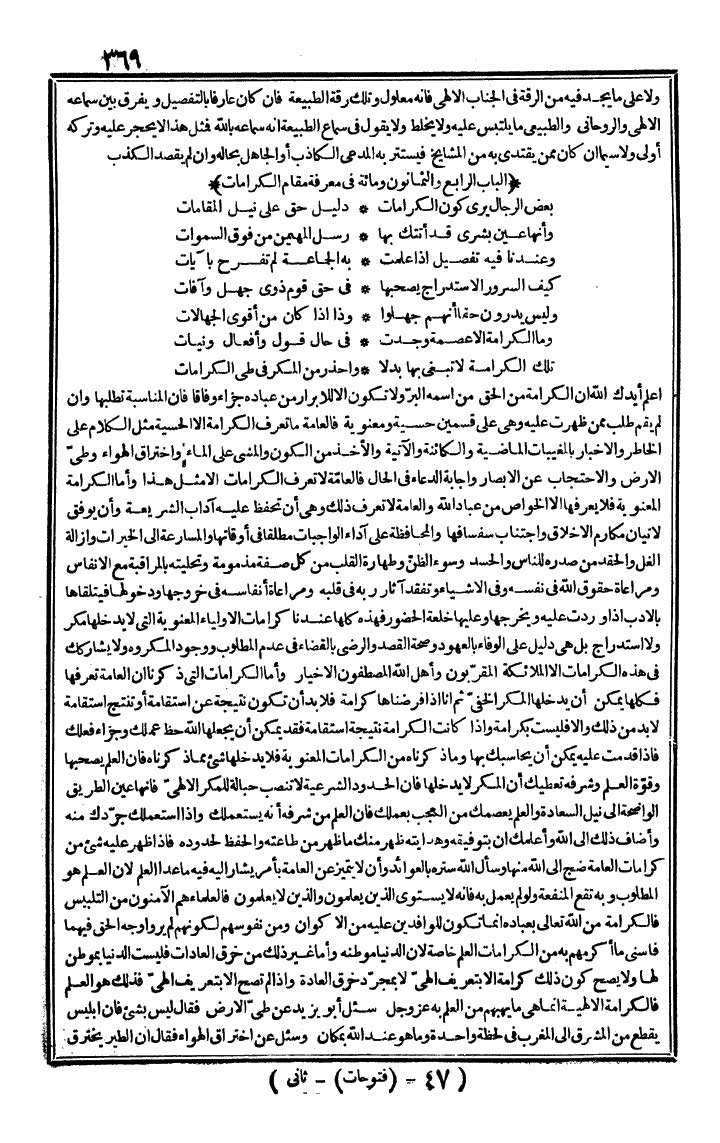 ٣٦٩
ولا على ما يجد فيه من الرقة فى الجناب الالهى فانه معلول وتلك رقة الطبيعة فان كان عارفا بالتفصيل ويفرق بين سماعه
الالهى والروحانى والطبيعى ما يلتبس عليه ولا يخلط ولا يقول فى سماع الطبيعة انه سماعه بالله فمثل هذا لا يحجر عليه وتركه
أولى ولا سيما ان كان ممن يقتدى به من المشايخ فيستتر به المدعى الكاذب أو الجاهل بحاله وان لم يقصد الكذب
﴿الباب الرابع والثمانون ومائة فى معرفة مقام الكرامات﴾
بعض الرجال يرى كون الكرامات * دليل حق على نيل المقامات
وأنها عين بشرى قد أتتك بها * رسل المهيمن من فوق السموات
وعندنا فيه تفصيل اذا علمت * به الجماعة لم تفرح بآيات
كيف السرور والاستدراج يصحبها * فى حق قوم ذوى جهل وآفات
وليس يدرون حقا أنهم جهلوا * وذا اذا كان من أقوى الجهالات
وما الكرامة الا عصمة وجدت * فى حال قول وأفعال ونيات
تلك الكرامة لا تبغى بها بدلا * واحذر من المكر فى طى الكرامات
اعلم أيدك الله ان الكرامة من الحق من اسمه البر ولا تكون الا للابرار من عباده جزاء وفاقا فان المناسبة تطلبها وان
لم يقم طلب ممن ظهرت عليه وهى على قسمين حسية ومعنوية فالعامة ما تعرف الكرامة الا الحسية مثل الكلام على
الخاطر والاخبار بالمغيبات الماضية والكائنة والآتية والأخذ من الكون والمشى على الماء واختراق الهواء وطىّ
الارض والاحتجاب عن الابصار واجابة الدعاء فى الحال فالعامّة لا تعرف الكرامات الا مثل هذا وأما الكرامة
المعنوية فلا يعرفها الا الخواص من عباد الله والعامة لا تعرف ذلك وهى أن تحفظ عليه آداب الشريعة وأن يوفق
لاتيان مكارم الاخلاق واجتناب سفسافها والمحافظة على آداء الواجبات مطلقا فى أوقاتها والمسارعة الى الخيرات وازالة
الغل والحقد من صدره للناس والحسد وسوء الظنّ وطهارة القلب من كل صفة مذمومة وتحليته بالمراقبة مع الانفاس
ومراعاة حقوق الله فى نفسه وفى الاشياء وتفقد آثار ربه فى قلبه ومراعاة أنفاسه فى خروجها ودخولها فيتلقاها
بالادب اذا وردت عليه ويخرجها وعليها خلعة الحضور فهذه كلها عندنا كرامات الاولياء المعنوية التى لا يدخلها مكر
ولا استدراج بل هى دليل على الوفاء بالعهود وصحة القصد والرضى بالقضاء فى عدم المطلوب ووجود المكروه ولا يشاركك
فى هذه الكرامات الا الملائكة المقرّبون وأهل الله المصطفون الاخيار وأما الكرامات التى ذكرنا ان العامة تعرفها
فكلها يمكن أن يدخلها المكر الخفىّ ثم انا اذا فرضناها كرامة فلا بد أن تكون نتيجة عن استقامة أو تنتج استقامة
لا بد من ذلك والا فليست بكرامة واذا كانت الكرامة نتيجة استقامة فقد يمكن أن يجعلها الله حظ عملك وجزاء فعلك
فاذا قدمت عليه يمكن أن يحاسبك بها وما ذكرناه من الكرامات المعنوية فلا يدخلها شئ مما ذكرناه فان العلم يصحبها
وقوّة العلم وشرفه تعطيك أن المكر لا يدخلها فان الحدود الشرعية لا تنصب حبالة للمكر الالهىّ فانها عين الطريق
الواضحة الى نيل السعادة والعلم يعصمك من العجب بعملك فان العلم من شرفه أنه يستعملك واذا استعملك جرّدك منه
وأضاف ذلك الى الله وأعلمك ان بتوفيقه وهدايته ظهر منك ما ظهر من طاعته والحفظ لحدوده فاذا ظهر عليه شئ من
كرامات العامة ضج الى الله منها وسأل الله ستره بالعوائد وأن لا يتميز عن العامة بأمر يشار اليه فيه ما عدا العلم لان العلم هو
المطلوب وبه تقع المنفعة ولو لم يعمل به فانه لا يستوى الذين يعلمون والذين لا يعلمون فالعلماء هم الآمنون من التلبيس
فالكرامة من الله تعالى بعباده انما تكون للوافدين عليه من الاكوان ومن نفوسهم لكونهم لم يروا وجه الحق فيهما
فاسنى ما أكرمهم به من الكرامات العلم خاصة لان الدنيا موطنه وأما غير ذلك من خرق العادات فليست الدنيا بموطن
لها ولا يصح كون ذلك كرامة الا بتعريف الهىّ لا بمجرّد خرق العادة واذا لم تصح الا بتعريف الهىّ فذلك هو العلم
فالكرامة الالهية انما هى ما يهبهم من العلم به عز وجل سئل أبو يزيد عن طىّ الارض فقال ليس بشئ فان ابليس
يقطع من المشرق الى المغرب فى لحظة واحدة وما هو عند الله بمكان وسئل عن اختراق الهواء فقال ان الطير يخترق
( ٤٧ - (فتوحات) - ثانى )